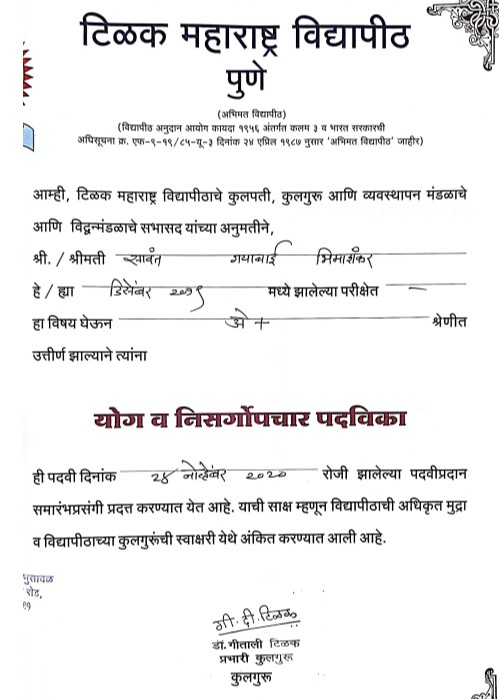 टिळक महाराष्ट्र विद्यापीठ
पुणे
(अभिमत विद्यापीठ)
(विद्यापीठ अनुदान आयोग कायदा १९५६ अंतर्गत कलम ३ व भारत सरकारची
अधिसूचना क्र. एफ-९-१९/८५-यू-३ दिनांक २४ एप्रिल १९८७ नुसार 'अभिमत विद्यापीठ' जाहीर)
आम्ही, टिळक महाराष्ट्र विद्यापीठाचे कुलपती, कुलगुरू आणि व्यवस्थापन मंडळाचे
आणि विद्वन्मंडळाचे सभासद यांच्या अनुमतीने,
श्री. / श्रीमती सावंत गयाबाई भिमाशंकर
हे / ह्या डिसेंबर २०१९ मध्ये झालेल्या परीक्षेत —
हा विषय घेऊन ओ + श्रेणीत
उत्तीर्ण झाल्याने त्यांना
योग व निसर्गोपचार पदविका
ही पदवी दिनांक २४ नोव्हेंबर २०२० रोजी झालेल्या पदवीप्रदान
समारंभप्रसंगी प्रदत्त करण्यात येत आहे. याची साक्ष म्हणून विद्यापीठाची अधिकृत मुद्रा
व विद्यापीठाच्या कुलगुरुंची स्वाक्षरी येथे अंकित करण्यात आली आहे.
भुसावळ
रोड,
गी. दी. टिळक
डॉ. गीताली टिळक
प्रभारी कुलगुरू
कुलगुरू